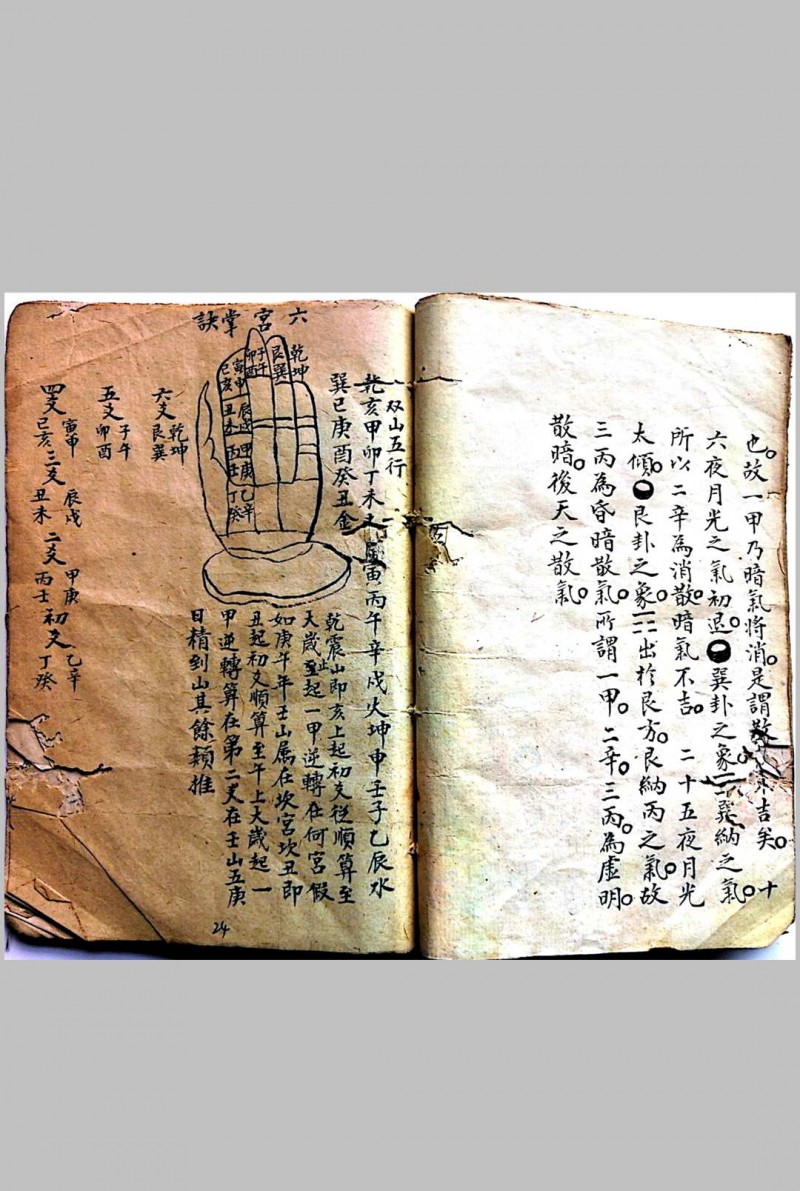 也。故一甲乃暗氣將消。是謂散吉矣。十
六夜月光之氣初退。巽卦之象☴巽納之氣。
所以二辛為消散暗氣不吉。二十五夜月光
太傾。艮卦之象☶出於艮方。艮納丙之氣。故
三丙為昏暗散氣。所謂一甲。二辛。三丙為虛明。
散暗。後天之散氣。
双山五行
乾亥甲卯丁未 寅丙午辛戌火坤申壬子乙辰水
巽巳庚酉癸丑金
六宮掌訣
乾坤
艮巽
子午
卯酉
寅申
巳亥
辰戌
丑未
甲庚
丙壬
乙辛
丁癸
乾震山即亥上起初爻從順算至
大歲止起一甲逆轉在何宮假
如庚午年壬山属在坎宮坎丑即
丑起初爻順算至午上大歲起一
甲逆轉算在第二爻在壬山五庚
日精到山其餘類推
六爻 乾坤 艮巽
五爻 子午 卯酉
四爻 寅申 巳亥
三爻 辰戌 丑未
二爻 甲庚 丙壬
初爻 乙辛 丁癸
24